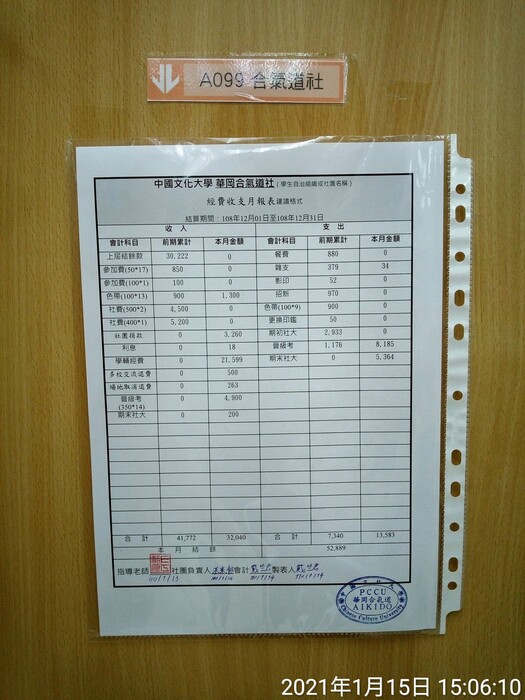 A099 合氣道社
中國文化大學 華岡合氣道社 (學生自治組織或社團名稱)
經費收支月報表 建議格式
結算期間：108年12月01日至108年12月31日
收 入 支 出
會計科目 前期累計 本月金額 會計科目 前期累計 本月金額
上屆結餘款 30,222 0 餐費 880 0
參加費(50*17) 850 0 雜支 379 34
參加費(100*1) 100 0 影印 52 0
色帶(100*13) 900 1,300 招新 970 0
社費(500*2) 4,500 0 色帶(100*9) 900 0
社費(400*1) 5,200 0 更換印鑑 50 0
社團捐款 0 3,260 期初社大 2,933 0
利息 0 18 晉級考 1,176 8,185
學輔經費 0 21,599 期末社大 0 5,364
多校交流退費 0 500
場地取消退費 0 263
晉級考 0 4,900
(350*14)
期末社大 0 200
合 計 41,772 32,040 合 計 7,340 13,583
本 月 結 餘 52,889
指導老師 社團負責人 會計 製表人
PCCU
華岡合氣道
AIKIDO
Chinese Culture University
2021年1月15日 15:06:10